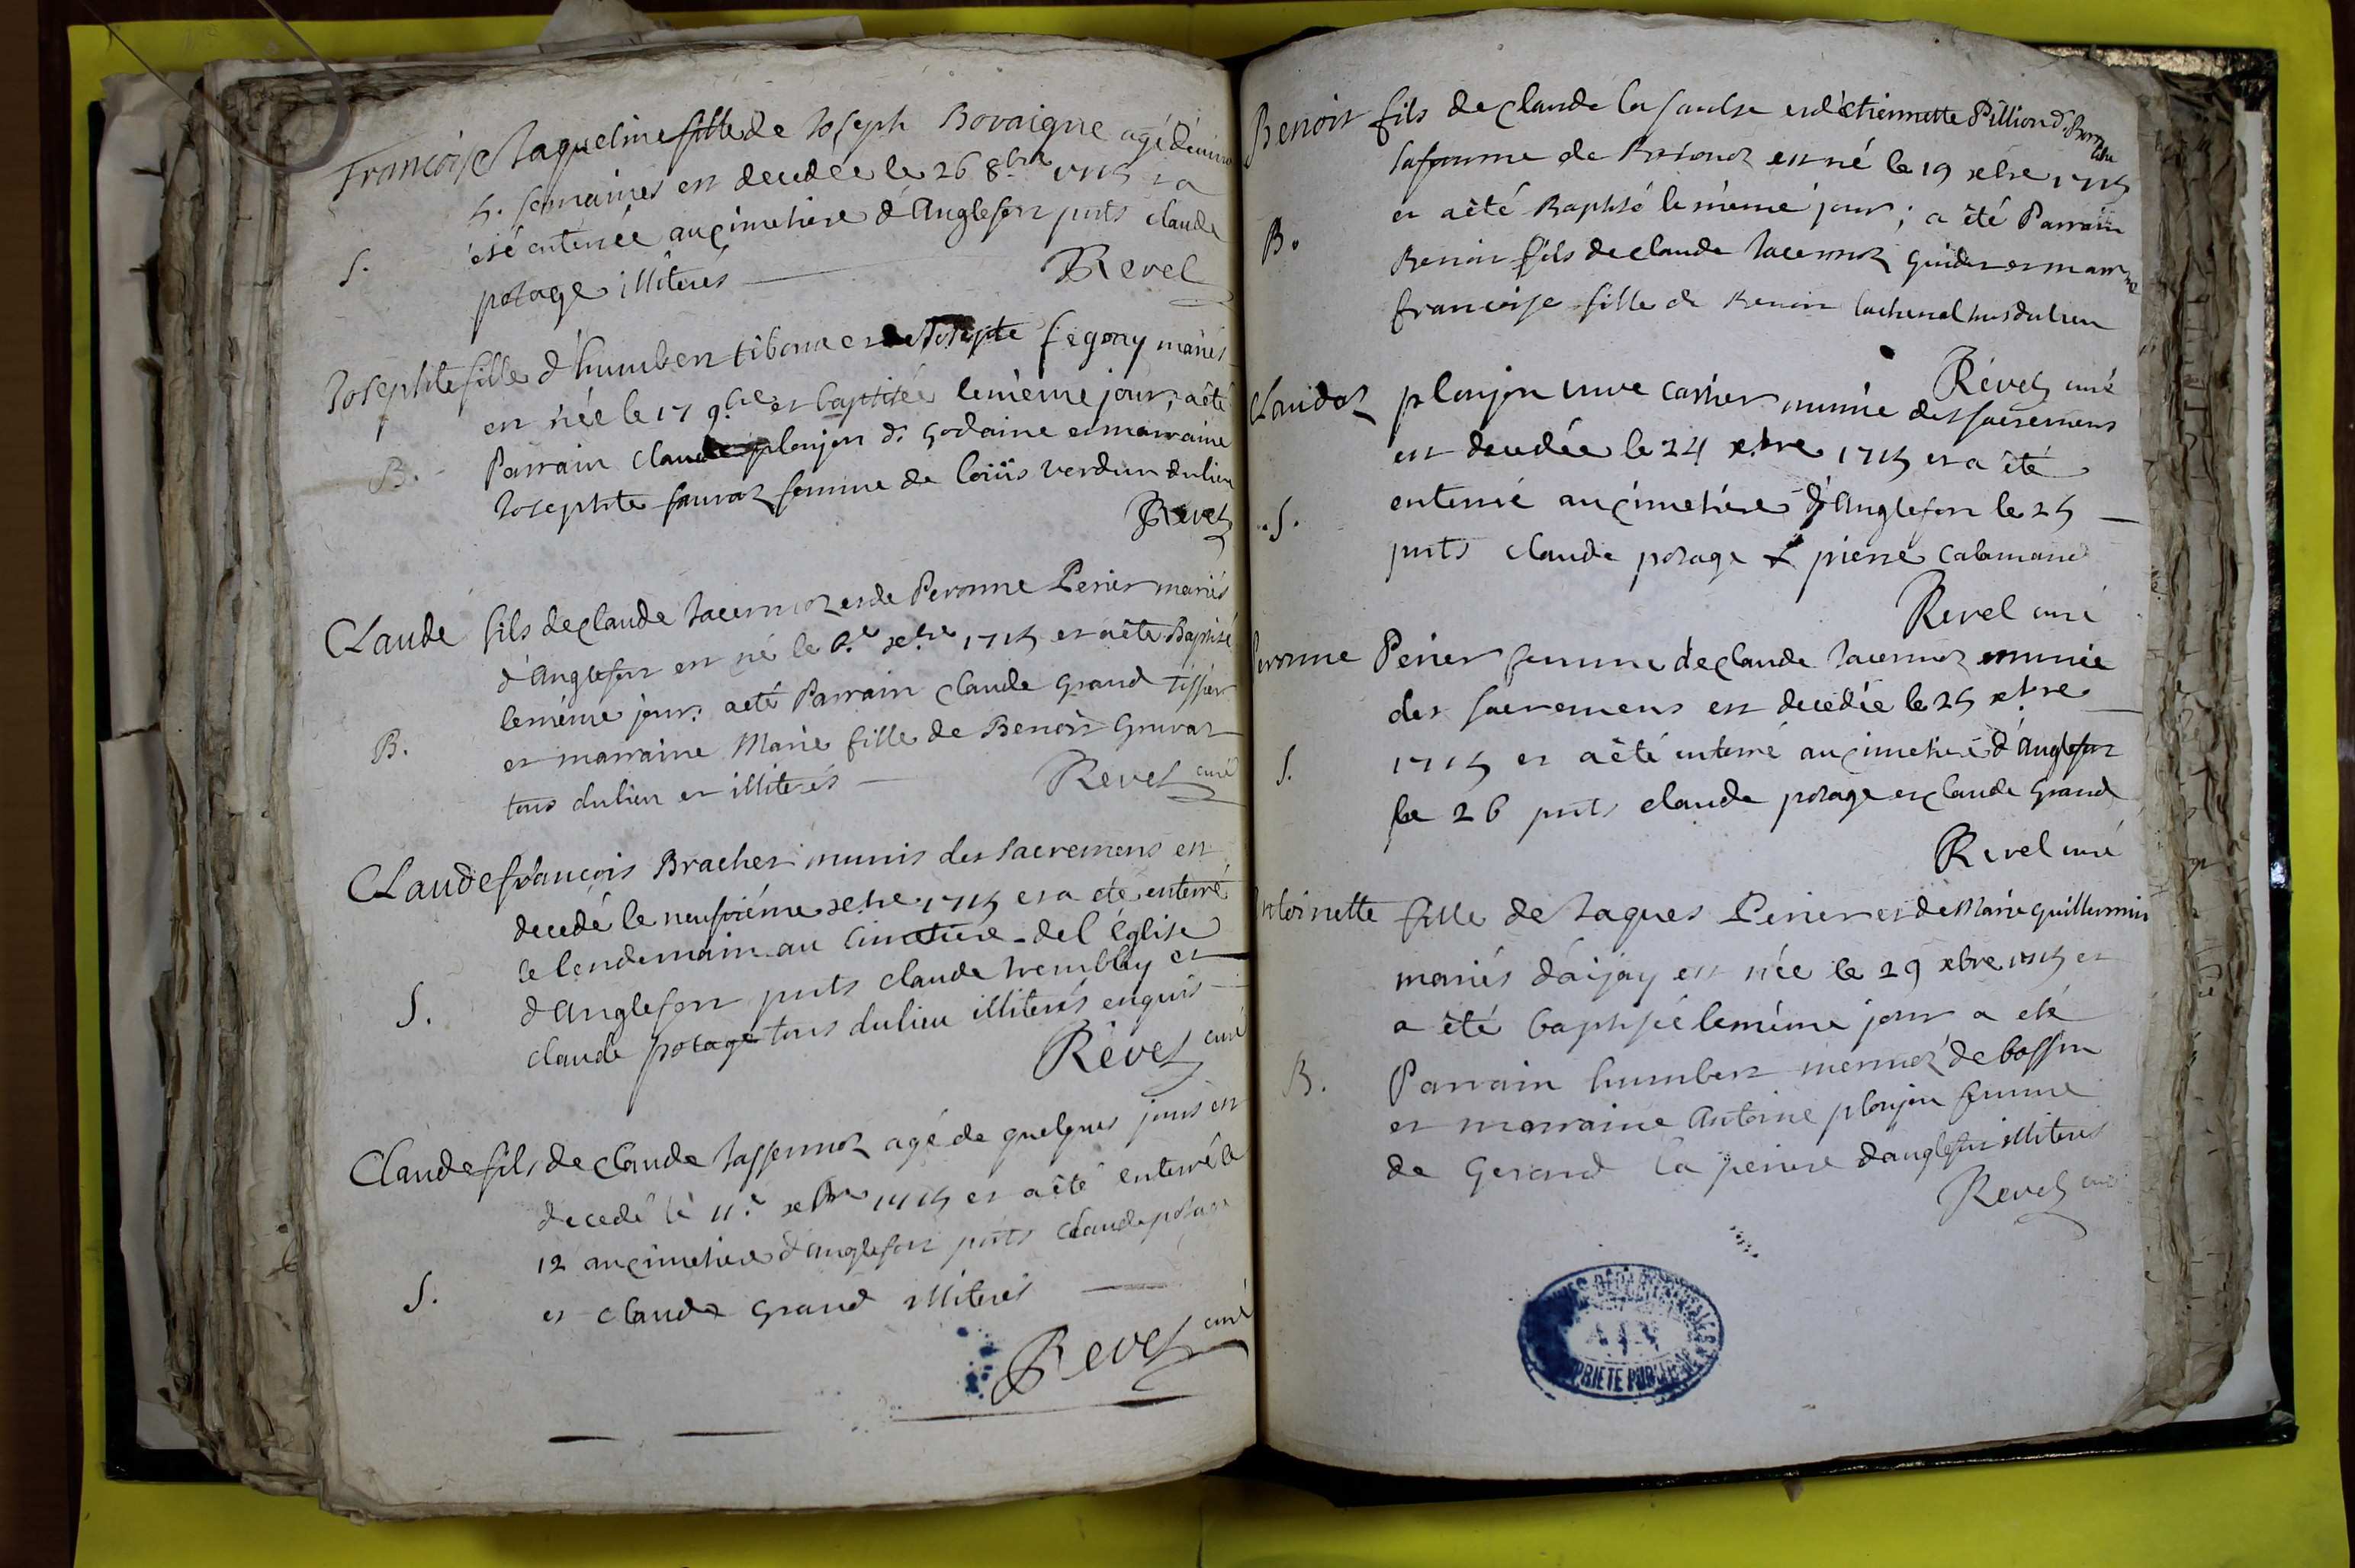 Francoise Jaqueline fille de Joseph Bovaigne agé d'environ
5. semaines est decedée le 26 8bre 1715 et a
été enterrée au çimetiere d'Anglefort pnts claude
S.
potage illiterés
Revel
Josephte fille d'humbert et de Josephte mariés
est née le 17 9bre et baptisée le méme jour; a êté
Parrain Claude plonjon de godaine et marraine
B.
Josephte femme de loüis verdun du lieu
Revel
CLaude fils de claude Jacermoz et de Peronne Perier mariés
d'Anglefort est né le 6.e xbre 1715 et a êté Baptisé
le méme jour: a eté Parrain Claude Grand Tissier
B.
et marraine Marie fille de Benoit Gruvat
tous du lieu et illiterés
Revel curé
CLaude françois Brachet munis des sacremens est
decedé le neufviéme xbre 1715 et a eté enterré
le lendemain au Cimetiere de l'église
S.
d'Anglefort pnts claude tremblay et
claude potage tous du lieu illiterés enquis
Revel curé
Claude fils de claude Jassermoz agé de quelques jours est
decedé le 11.e xbre 1715 et a êté enterré le
12 au çimetiere d'Anglefort pnts Claude potage
S.
et claude Grand illiterés
Revel curé
Benoit fils de claude la et d'étiennette Pillion
de est né le 19 xbre 1715
et a êté Baptisé le méme jour; a êté Parrain
B.
Benoit fils de claude Jacermoz et marraine
francoise fille de Benoit lachenal du lieu
Revel curé
Claudaz plonjon vve carrier munie des sacremens
est decedée le 24 xbre 1715 et a êté
enterré au çimetiére d'Anglefort le 25
S.
pnts claude potage & pierre Calamand
Revel curé
Peronne Perier femme de claude Jacermoz munie
des sacremens est decedée le 25 xbre
1715 et a êté enterré au çimetiere d'Anglefort
S.
le 26 pnts claude potage et claude Grand
Revel curé
Antoinette fille de Jaques Perier et de Marie guillermin
mariés d'aijay est née le 29 xbre 1715 et
a êté baptisée le méme jour a eté
B.
Parrain humbert mermoz de bossin
et marraine Antoine plonjon femme
de Gerard la perière d'anglefort illiterés
Revel curé
ARCHIVES DÉPARTEMENTALES
AIN
PROPRIETE PUBLIQUE